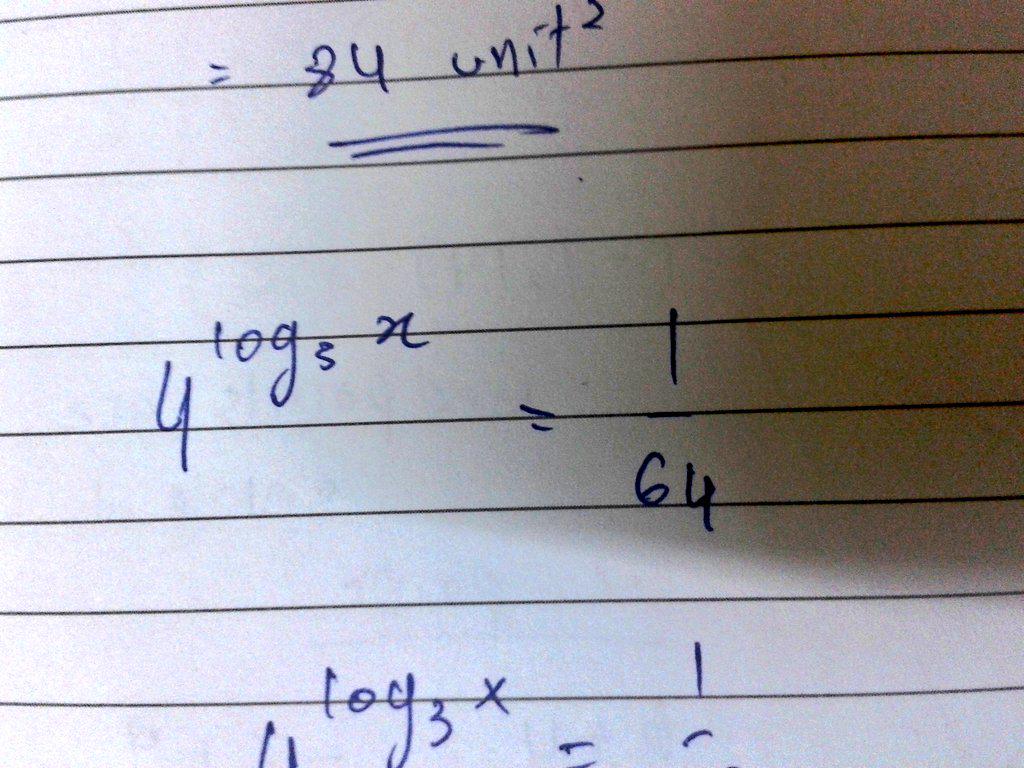 = 84 unit²
4^log₃ x = 1/64
log₃ x = 1